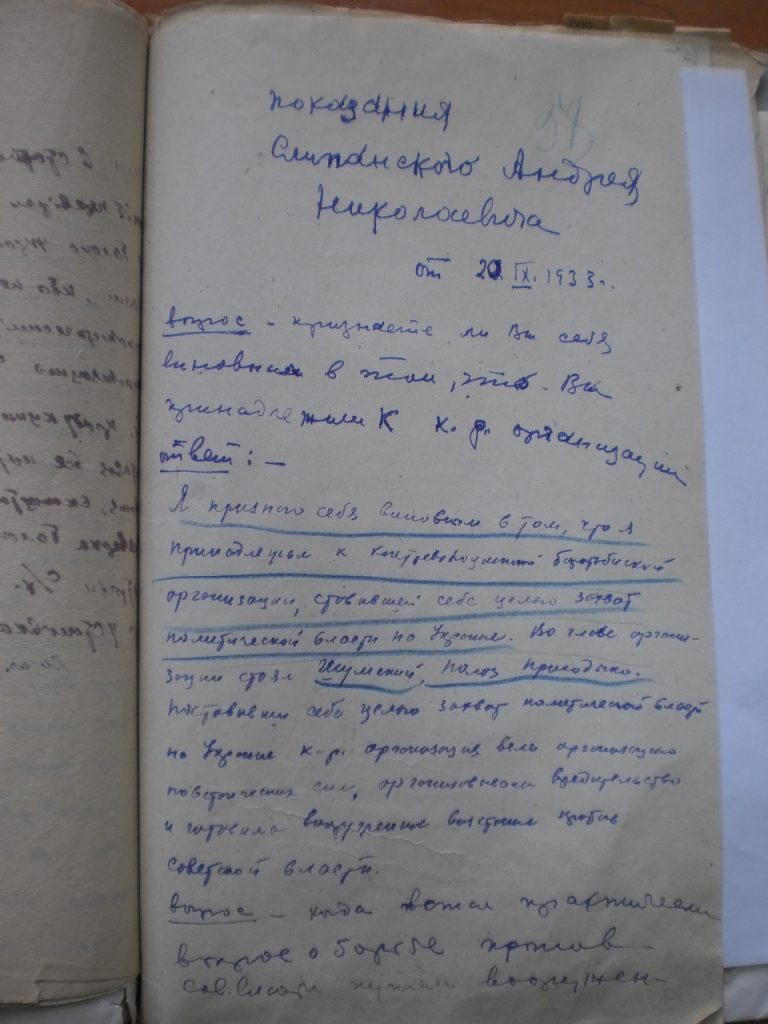 97
показания
Слипанского Андрея
Николаевича
от 20. IX. 1933 г.
вопрос – признаете ли Вы себя
виновным в том, что Вы
принадлежали к к. р. организации
ответ: –
Я признаю себя виновным в том, что я
принадлежал к контрреволюционной боротьбиской
организации, ставившей себе целью захват
политической власти на Украине. Во главе органи-
зации стоял Шумский, Полоз Приходько.
Поставивши себе целью захват политической власти
на Украине к-р. организация вела организацию
повстанческих сил, организовывала вредительство
и готовила вооруженное восстание против
советской власти.
вопрос – когда встал практически
вопрос о борьбе против
сов. власти путем вооружен-